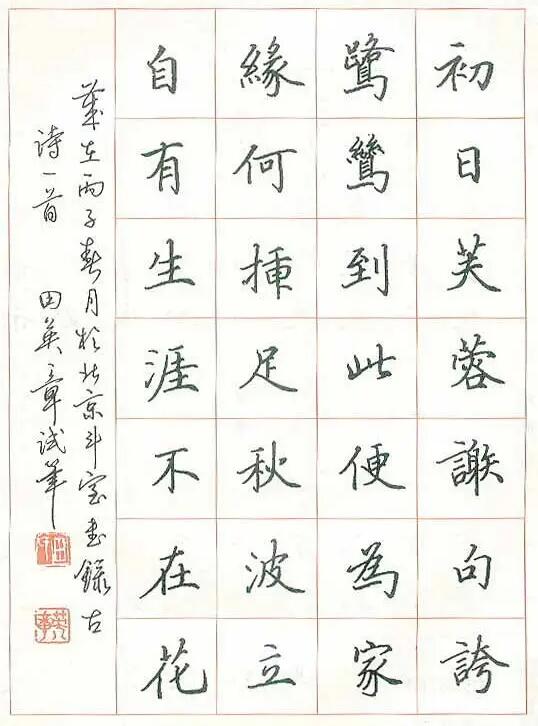 初日芙蓉謝句誇
鷺鸞到此便為家
緣何挿足秋波立
自有生涯不在花
歲在丙子春月於北京斗室書錄古
诗一首 田英章试笔